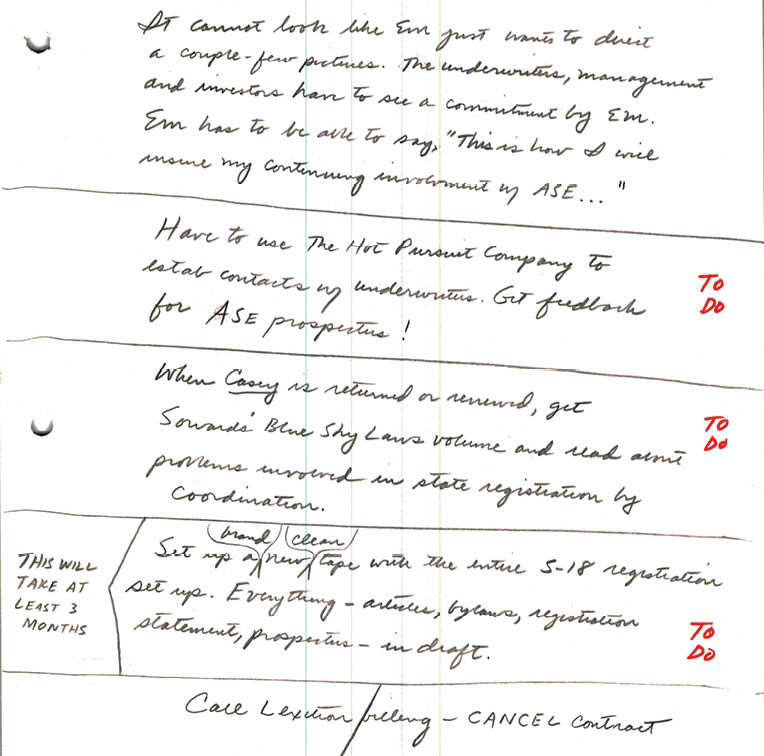 It cannot look like Em just wants to direct
a couple-few pictures. The underwriters, management
and investors have to see a commitment by Em.
Em has to be able to say, "This is how I will
insure my continuing involvment w/ ASE..."
Have to use The Hot Pursuit Company to
estab contacts w/ underwriters. Get feedback
for ASE prospectus!
TO
DO
When Casey is returned or renewed, get
Sowards' Blue Sky Laws volume and read about
problems involved in state registration by
Coordination.
TO
DO
THIS WILL
TAKE AT
LEAST 3
MONTHS
brand clean
Set up a new tape with the entire S-18 registration
set up. Everything - articles, bylaws, registration
statement, prospectus - in draft.
TO
DO
Call Lexitron / billing - CANCEL Contract